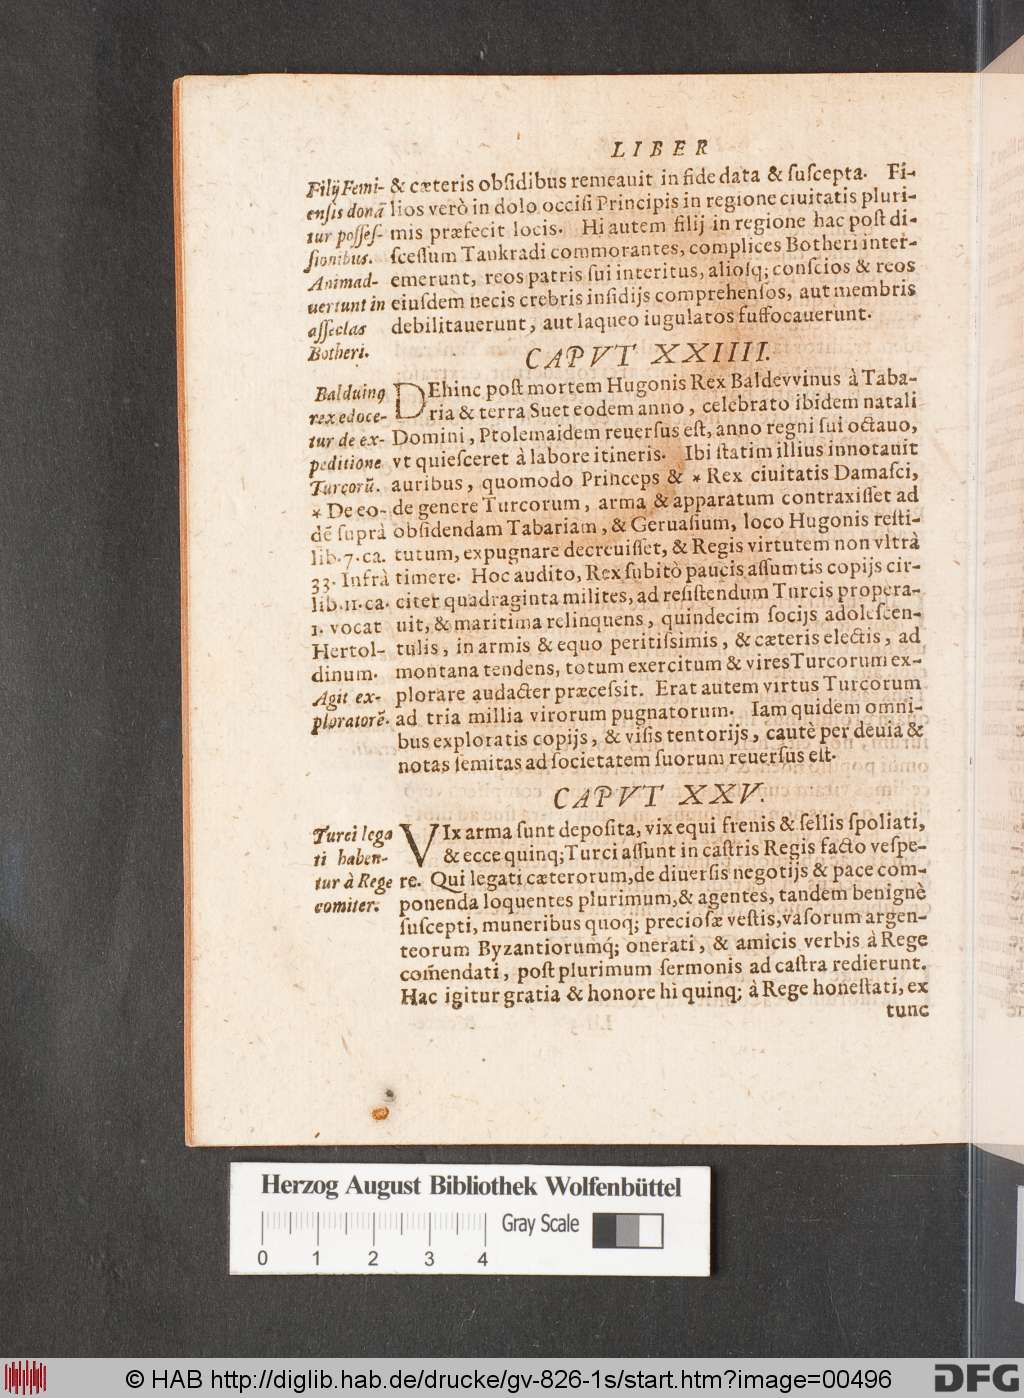 LIBER
Filij Femi-
ensis donā
tur posses-
sionibus.
Animad-
uertunt in
asseclas
Botheri.
& cæteris obsidibus remeauit in fide data & suscepta. Fi-
lios verò in dolo occisi Principis in regione ciuitatis pluri-
mis præfecit locis. Hi autem filij in regione hac post di-
scessum Tankradi commorantes, complices Botheri inter-
emerunt, reos patris sui interitus, aliosq; conscios & reos
eiusdem necis crebris insidijs comprehensos, aut membris
debilitauerunt, aut laqueo iugulatos suffocauerunt.
CAPVT XXIIII.
Balduinꝰ
rex edoce-
tur de ex-
peditione
Turcorū.
* De eo-
dē suprà
lib. 7. ca.
33. Infrà
lib. 11. ca.
1. vocat
Hertol-
dinum.
Agit ex-
ploratorē.
DEhinc post mortem Hugonis Rex Baldevvinus à Taba-
ria & terra Suet eodem anno, celebrato ibidem natali
Domini, Ptolemaidem reuersus est, anno regni sui octauo,
vt quiesceret à labore itineris. Ibi statim illius innotauit
auribus, quomodo Princeps & * Rex ciuitatis Damasci,
de genere Turcorum, arma & apparatum contraxisset ad
obsidendam Tabariam, & Geruasium, loco Hugonis resti-
tutum, expugnare decreuisset, & Regis virtutem non vltrà
timere. Hoc audito, Rex subitò paucis assumtis copijs cir-
citer quadraginta milites, ad resistendum Turcis propera-
uit, & maritima relinquens, quindecim socijs adolescen-
tulis, in armis & equo peritissimis, & cæteris electis, ad
montana tendens, totum exercitum & vires Turcorum ex-
plorare audacter præcessit. Erat autem virtus Turcorum
ad tria millia virorum pugnatorum. Iam quidem omni-
bus exploratis copijs, & visis tentorijs, cautè per deuia &
notas semitas ad societatem suorum reuersus est.
CAPVT XXV.
Turci lega
ti haben-
tur à Rege
comiter.
VIx arma sunt deposita, vix equi frenis & sellis spoliati,
& ecce quinq; Turci assunt in castris Regis facto vespe-
re. Qui legati cæterorum, de diuersis negotijs & pace com-
ponenda loquentes plurimum, & agentes, tandem benignè
suscepti, muneribus quoq; preciosæ vestis, vasorum argen-
teorum Byzantiorumq́; onerati, & amicis verbis à Rege
com̃endati, post plurimum sermonis ad castra redierunt.
Hac igitur gratia & honore hi quinq; à Rege honestati, ex
tunc
Herzog August Bibliothek Wolfenbüttel
Gray Scale
0 1 2 3 4
© HAB http://diglib.hab.de/drucke/gv-826-1s/start.htm?image=00496
DFG